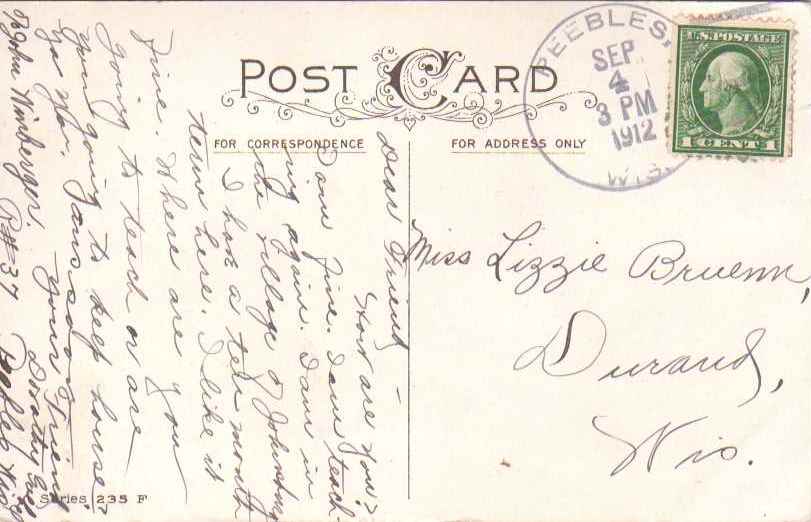 POST CARD
FOR CORRESPONDENCE
FOR ADDRESS ONLY
PEEBLES,
SEP
4
3 PM
1912
WIS.
U.S. POSTAGE
1 CENT 1
Miss Lizzie Bruenn,
Durand,
Wis.
Dear Friend—
How are you?
I am fine. I am teach-
ing again. I am in
the village of Johnsburg
I have a ten month
term here. I like it
fine. Where are you
going to teach or are
you going to keep house?
Your Friend
Dorothy
℅ John Nimberger. R#37 Peebles Wis
Series 235 F